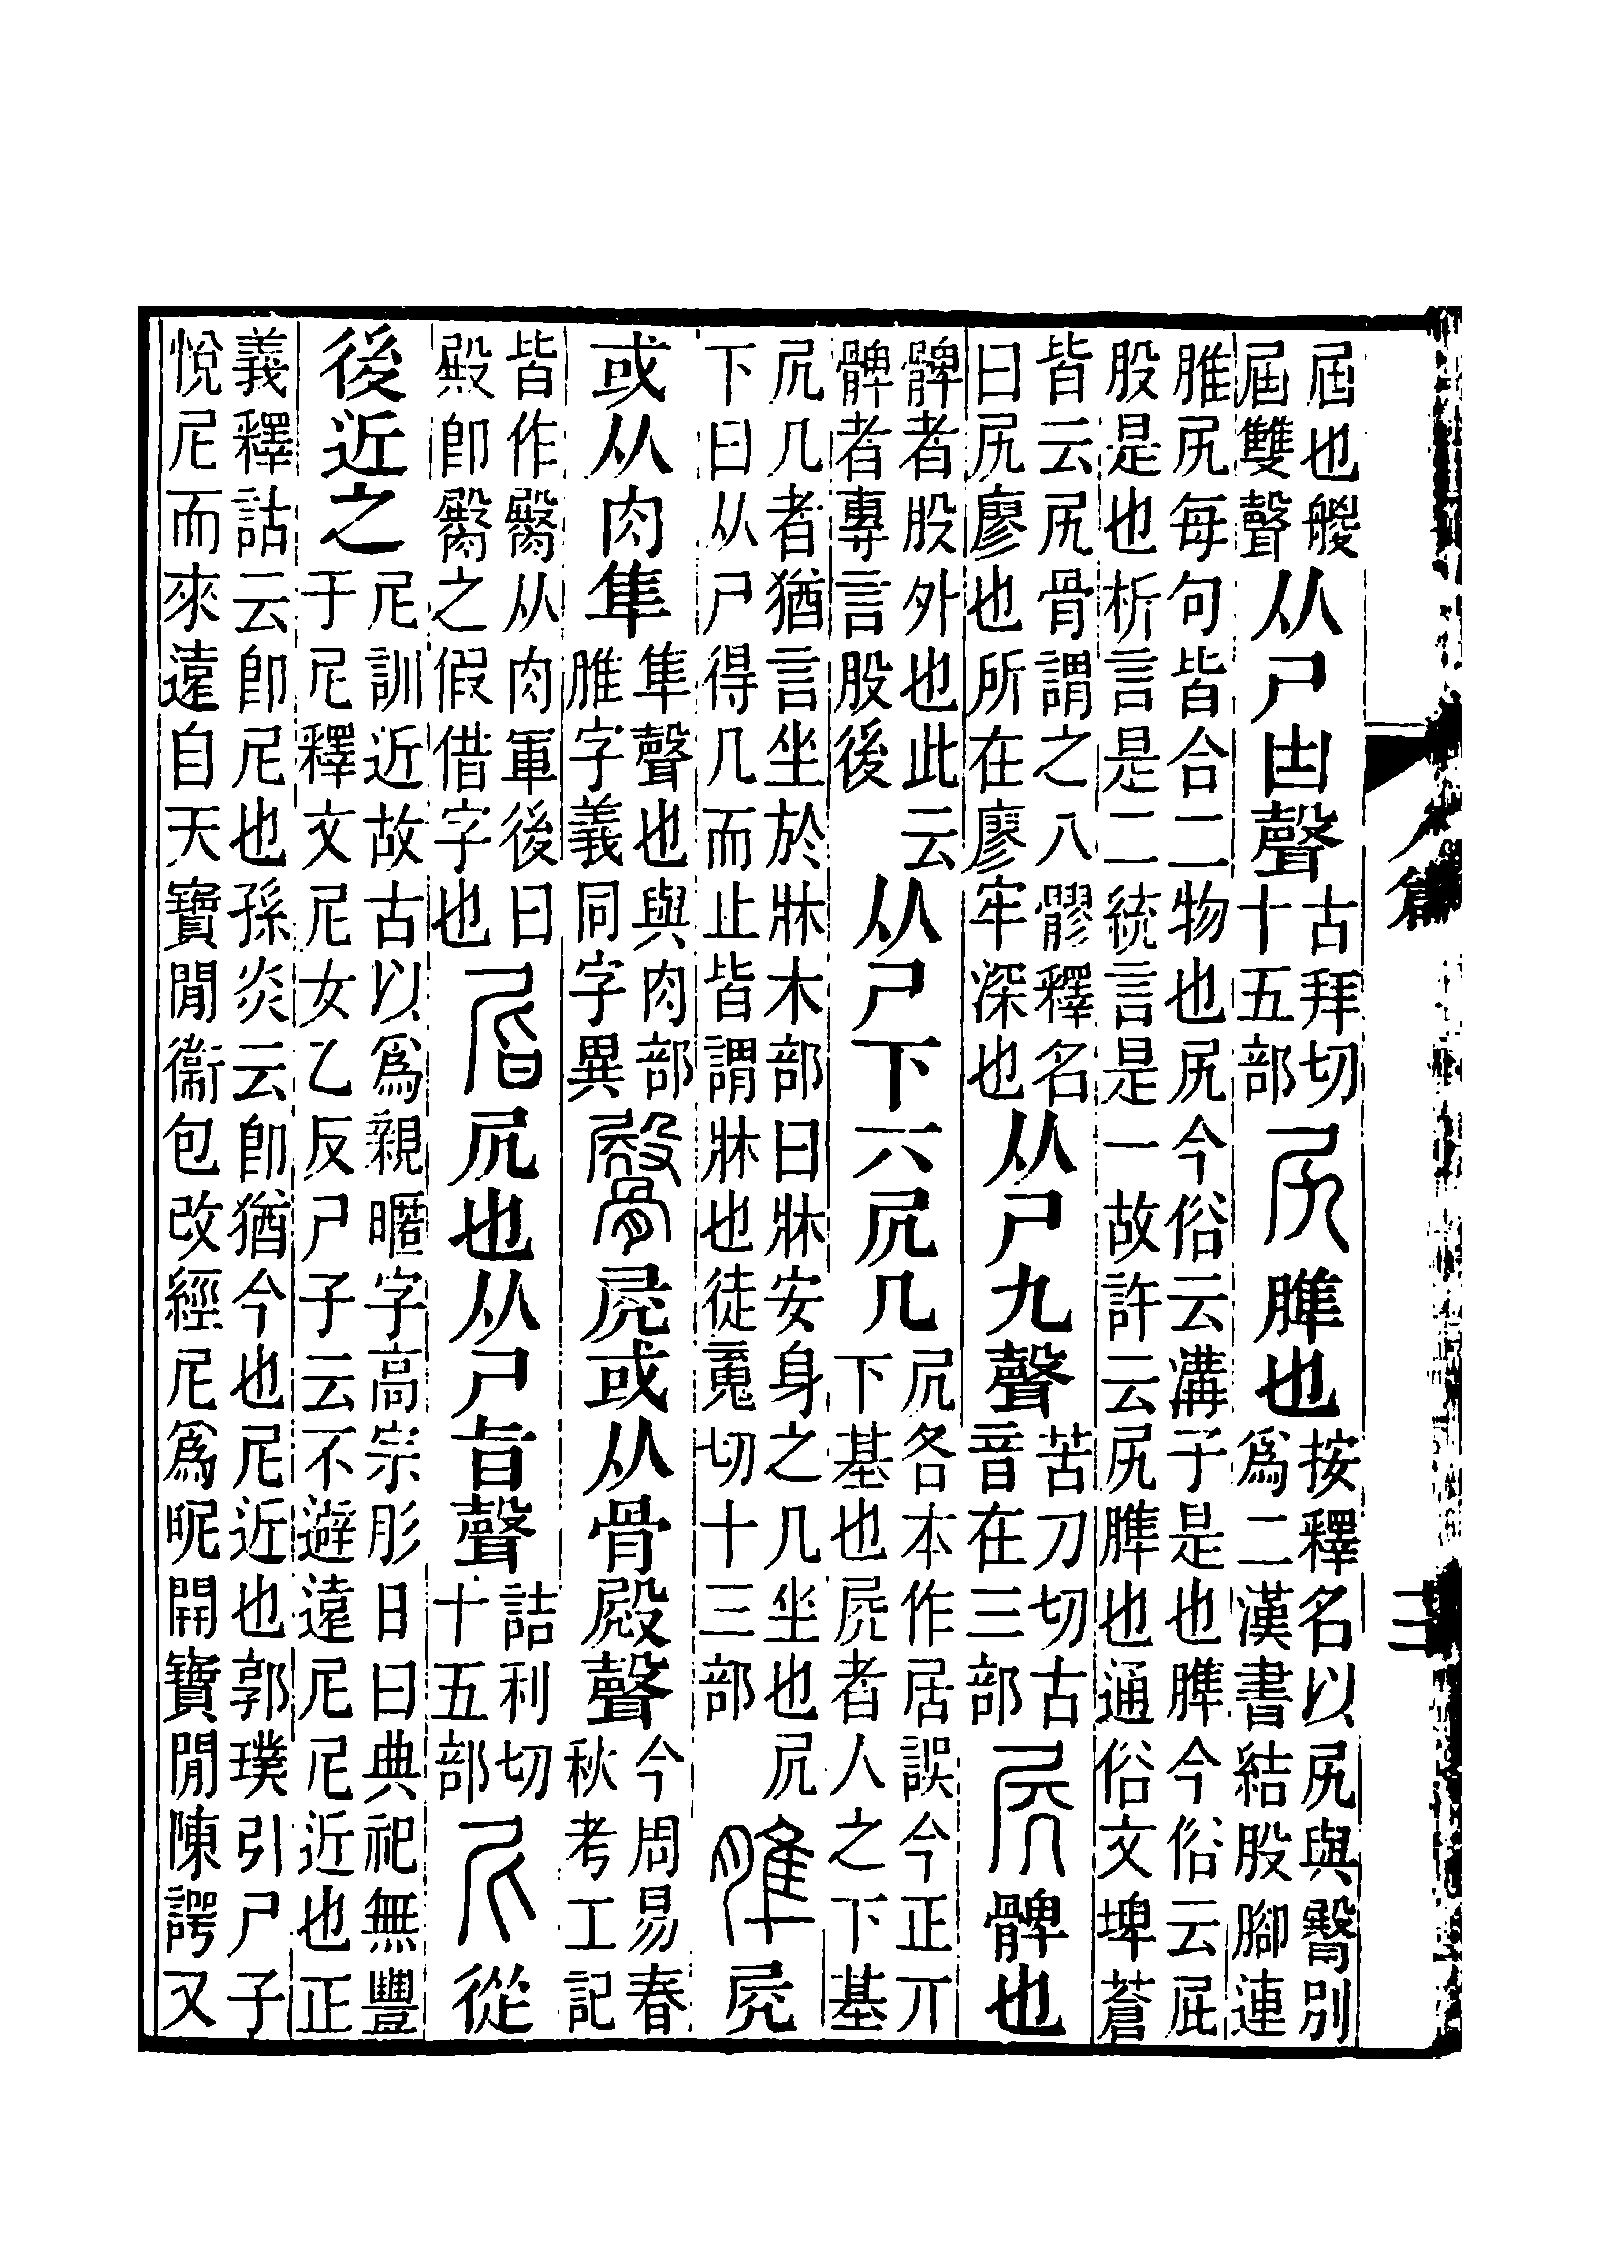 屆也艐
屆雙聲
从尸凷聲
古拜切
十五部
尻
脽也
按釋名以尻與臀別
爲二漢書結股腳連
脽尻每句皆合二物也尻今俗云溝子是也脽今俗云屁
股是也析言是二統言是一故許云尻脽也通俗文埤蒼
皆云尻骨謂之八髎釋名
曰尻廖也所在廖牢深也
从尸九聲
苦刀切古
音在三部
𡱒
髀也
髀者股外也此云
髀者專言股後
从尸下六凥几
凥各本作居誤今正丌
下基也𡱒者人之下基
凥几者猶言坐於牀木部曰牀安身之几坐也凥
下曰从尸得几而止皆謂牀也徒䰟切十三部
脽
𡱒
或从肉隼
隼聲也與肉部
脽字義同字異
𩪡
𡱒或从骨殿聲
今周易春
秋考工記
皆作臀从肉軍後曰
殿卽臀之假借字也
𡱈
凥也从尸旨聲
詰利切
十五部
尼
從
後近之
尼訓近故古以爲親暱字高宗肜日曰典祀無豐
于尼釋文尼女乙反尸子云不避遠尼尼近也正
義釋詁云卽尼也孫炎云卽猶今也尼近也郭璞引尸子
悅尼而來遠自天寶閒衞包改經尼爲昵開寶閒陳諤又